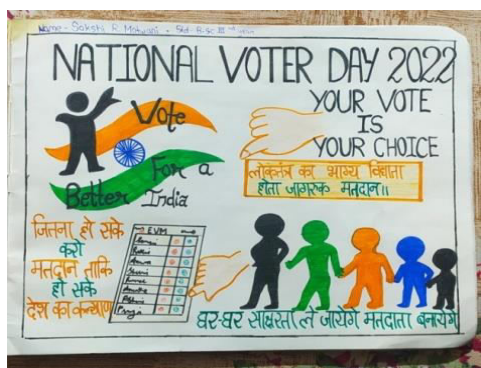 Name - Sakshi R.
NATIONAL VOTER DAY 2022
Vote
For a
Better India
YOUR VOTE
IS
YOUR CHOICE
लोकतंत्र का भाग्य विधाता
होता जागरूक मतदाता॥
जितना हो सके
करो
मतदान ताकि
हो सके
देश का कल्याण
EVM
घर-घर साक्षरता ले जायेंगे मतदाता बनायेंगे